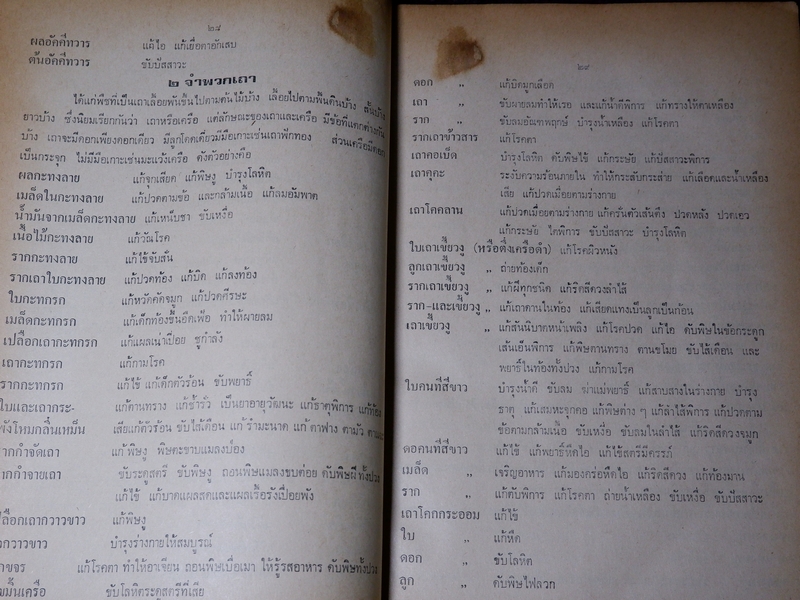 ๒๘
ผลอัคคีทวาร แก้ไอ แก้เยื่อตาอักเสบ
ต้นอัคคีทวาร ขับปัสสาวะ
๒ จำพวกเถา
ได้แก่พืชที่เป็นเถาเลื้อยพันขึ้นไปตามต้นไม้บ้าง เลื้อยไปตามพื้นดินบ้าง สั้นบ้าง
ยาวบ้าง ซึ่งนิยมเรียกกันว่า เถาหรือเครือ แต่ลักษณะของเถาและเครือ มีข้อที่แตกต่างกัน
บ้าง เถาจะมีดอกเพียงดอกเดียว มีลูกโดดเดี่ยวมีมือเกาะเช่นเถาฟักทอง ส่วนเครือมีดอก
เป็นกระจุก ไม่มีมือเกาะเช่นมะแว้งเครือ ดังตัวอย่างคือ
ผลกะทงลาย แก้จุกเสียด แก้พิษงู บำรุงโลหิต
เมล็ดในกะทงลาย แก้ปวดตามข้อ และกล้ามเนื้อ แก้ลมอัมพาต
น้ำมันจากเมล็ดกะทงลาย แก้เหน็บชา ขับเหงื่อ
เนื้อไม้กะทงลาย แก้วัณโรค
รากกะทงลาย แก้ไข้จับสั่น
รากเถาใบกะทงลาย แก้ปวดท้อง แก้บิด แก้ลงท้อง
ใบกะทกรก แก้หวัดคัดจมูก แก้ปวดศีรษะ
เมล็ดกะทกรก แก้เด็กท้องขึ้นอืดเฟ้อ ทำให้ผายลม
เปลือกเถากะทกรก แก้แผลเน่าเปื่อย ชูกำลัง
เถากะทกรก แก้กามโรค
รากกะทกรก แก้ไข้ แก้เด็กตัวร้อน ขับพยาธิ์
ใบและเถากระ- แก้ตานทราง แก้ช้ำรั่ว เป็นยาอายุวัฒนะ แก้ธาตุพิการ แก้ท้อง
พังโหมกลิ่นเหม็น เสียแก้ตัวร้อน ขับไส้เดือน แก้ รำมะนาด แก้ ตาฟาง ตามัว
รากกำจัดเถา แก้ พิษงู พิษตะขาบแมลงป่อง
รากกำจายเถา ขับระดูสตรี ขับพิษงู ถอนพิษแมลงขบต่อย ดับพิษฝี ทั้งปวง
แก้ไข้ แก้บาดแผลสดและแผลเรื้อรังเปื่อยพัง
เปลือกเถากวาวขาว แก้พิษงู
กวาวขาว บำรุงร่างกายให้สมบูรณ์
ขจร แก้โรคตา ทำให้อาเจียน ถอนพิษเบื่อเมา ให้รู้รสอาหาร ดับพิษทั้งปวง
ขมิ้นเครือ ขับโลหิตระดูสตรีที่เสีย
๒๙
ดอก ,, แก้บิดมูกเลือด
เถา ,, ขับผายลมทำให้เรอ และแก้น้ำดีพิการ แก้ทรางให้ตาเหลือง
ราก ,, ขับลมอัณฑพฤกษ์ บำรุงน้ำเหลือง แก้โรคตา
รากเถาข้าวสาร แก้โรคตา
เถาคอเบ็ด บำรุงโลหิต ดับพิษไข้ แก้กระษัย แก้ปัสสาวะพิการ
เถาคุคะ ระงับความร้อนภายใน ทำให้กระสับกระส่าย แก้เลือดและน้ำเหลือง
เสีย แก้ปวดเมื่อยตามร่างกาย
เถาโคคลาน แก้ปวดเมื่อยตามร่างกาย แก้ครั่นตัวเส้นตึง ปวดหลัง ปวดเอว
แก้กระษัย ไตพิการ ขับปัสสาวะ บำรุงโลหิต
ใบเถาเขี้ยวงู (หรือตึ่งเครือดำ) แก้โรคผิวหนัง
ลูกเถาเขี้ยวงู ,, ถ่ายท้องเด็ก
รากเถาเขี้ยวงู ,, แก้ฝีทุกชนิด แก้ริดสีดวงลำไส้
ราก-และเขี้ยวงู ,, แก้เถาดานในท้อง แก้เสียดแทงเป็นลูกเป็นก้อน
เถาเขี้ยวงู ,, แก้สันนิบาตหน้าเพลิง แก้โรคปวด แก้ไอ ดับพิษในข้อกระดูก
เส้นเอ็นพิการ แก้พิษตานทราง ตานขโมย ขับไส้เดือน และ
พยาธิ์ในท้องทั้งปวง แก้กามโรค
ใบคนทีสีขาว บำรุงน้ำดี ขับลม ฆ่าแม่พยาธิ์ แก้สาบสางในร่างกาย บำรุง
ธาตุ แก้เสมหะจุกคอ แก้พิษต่าง ๆ แก้ลำไส้พิการ แก้ปวดตาม
ข้อตามกล้ามเนื้อ ขับเหงื่อ ขับลมในลำไส้ แก้ริดสีดวงจมูก
ดอคนทีสีขาว แก้ไข้ แก้พยาธิ์หืดไอ แก้ไข้สตรีมีครรภ์
เมล็ด ,, เจริญอาหาร แก้มองคร่อหืดไอ แก้ริดสีดวง แก้ท้องมาน
ราก ,, แก้ตับพิการ แก้โรคตา ถ่ายน้ำเหลือง ขับเหงื่อ ขับปัสสาวะ
เถาโคกกระออม แก้ไข้
ใบ ,, แก้หืด
ดอก ,, ขับโลหิต
ลูก ,, ดับพิษไฟลวก